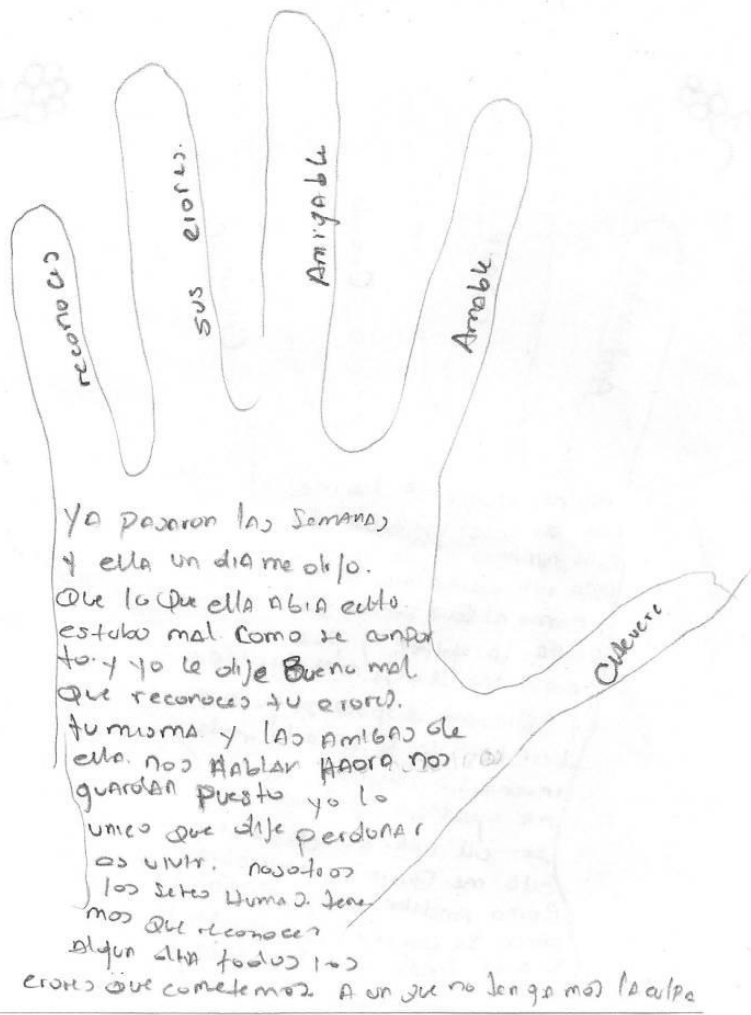 reconoces
sus erores.
Amigable
Amable
Chevere
YA pasaron las semanas
y ella un dia me dijo.
Que lo que ella Abia echo
estubo mal. Como se conpor
to. y yo le dije Bueno mal
que reconoces tu erores.
tu misma y las amigas de
ella. nos Hablan Haora nos
guardan puesto yo lo
unico que dije perdonar
es vivir. nosotros
los seres Humas. tene
mos que reconocer
Algun dia todos los
erores que cometemos. A un que no tengamos la culpa